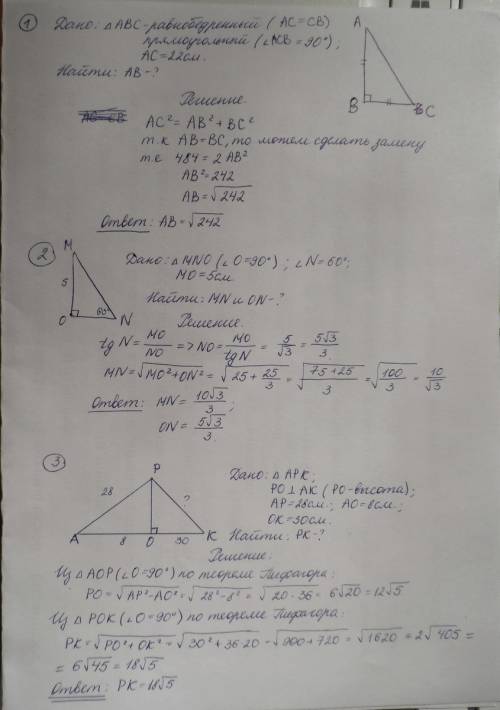 1 Дано: △ABC-равнобедренный (AC=CB)
прямоугольный (∠ACB=90°);
AC=22см.
Найти: AB-?
A
B
C
Решение.
AC² = AB² + BC²
т.к AB=BC, то можем сделать замену
т.е 484=2AB²
AB²=242
AB=√242
Ответ: AB=√242
2
M
5
O
60°
N
Дано: △MNO (∠O=90°); ∠N=60°;
MO=5см.
Найти: MN и ON-?
Решение.
tg N = MO/NO => NO = MO/tgN = 5/√3 = 5√3/3.
MN=√(MO²+ON²) = √(25+25/3) = √((75+25)/3) = √(100/3) = 10/√3
Ответ: MN = 10√3/3;
ON = 5√3/3
3
P
28
?
A
8
O
30
K
Дано: △APK;
PO⊥AK (PO-высота);
AP=28см.; AO=8см.;
OK=30см.
Найти: PK-?
Решение:
Из △AOP (∠O=90°) по теореме Пифагора:
PO=√(AP²-AO²)=√(28²-8²) = √(20·36) = 6√20=12√5
Из △POK (∠O=90°) по теореме Пифагора:
PK=√(PO²+OK²)=√(30²+36·20)=√(900+720)=√1620=2√405=
=6√45=18√5
Ответ: PK=18√5